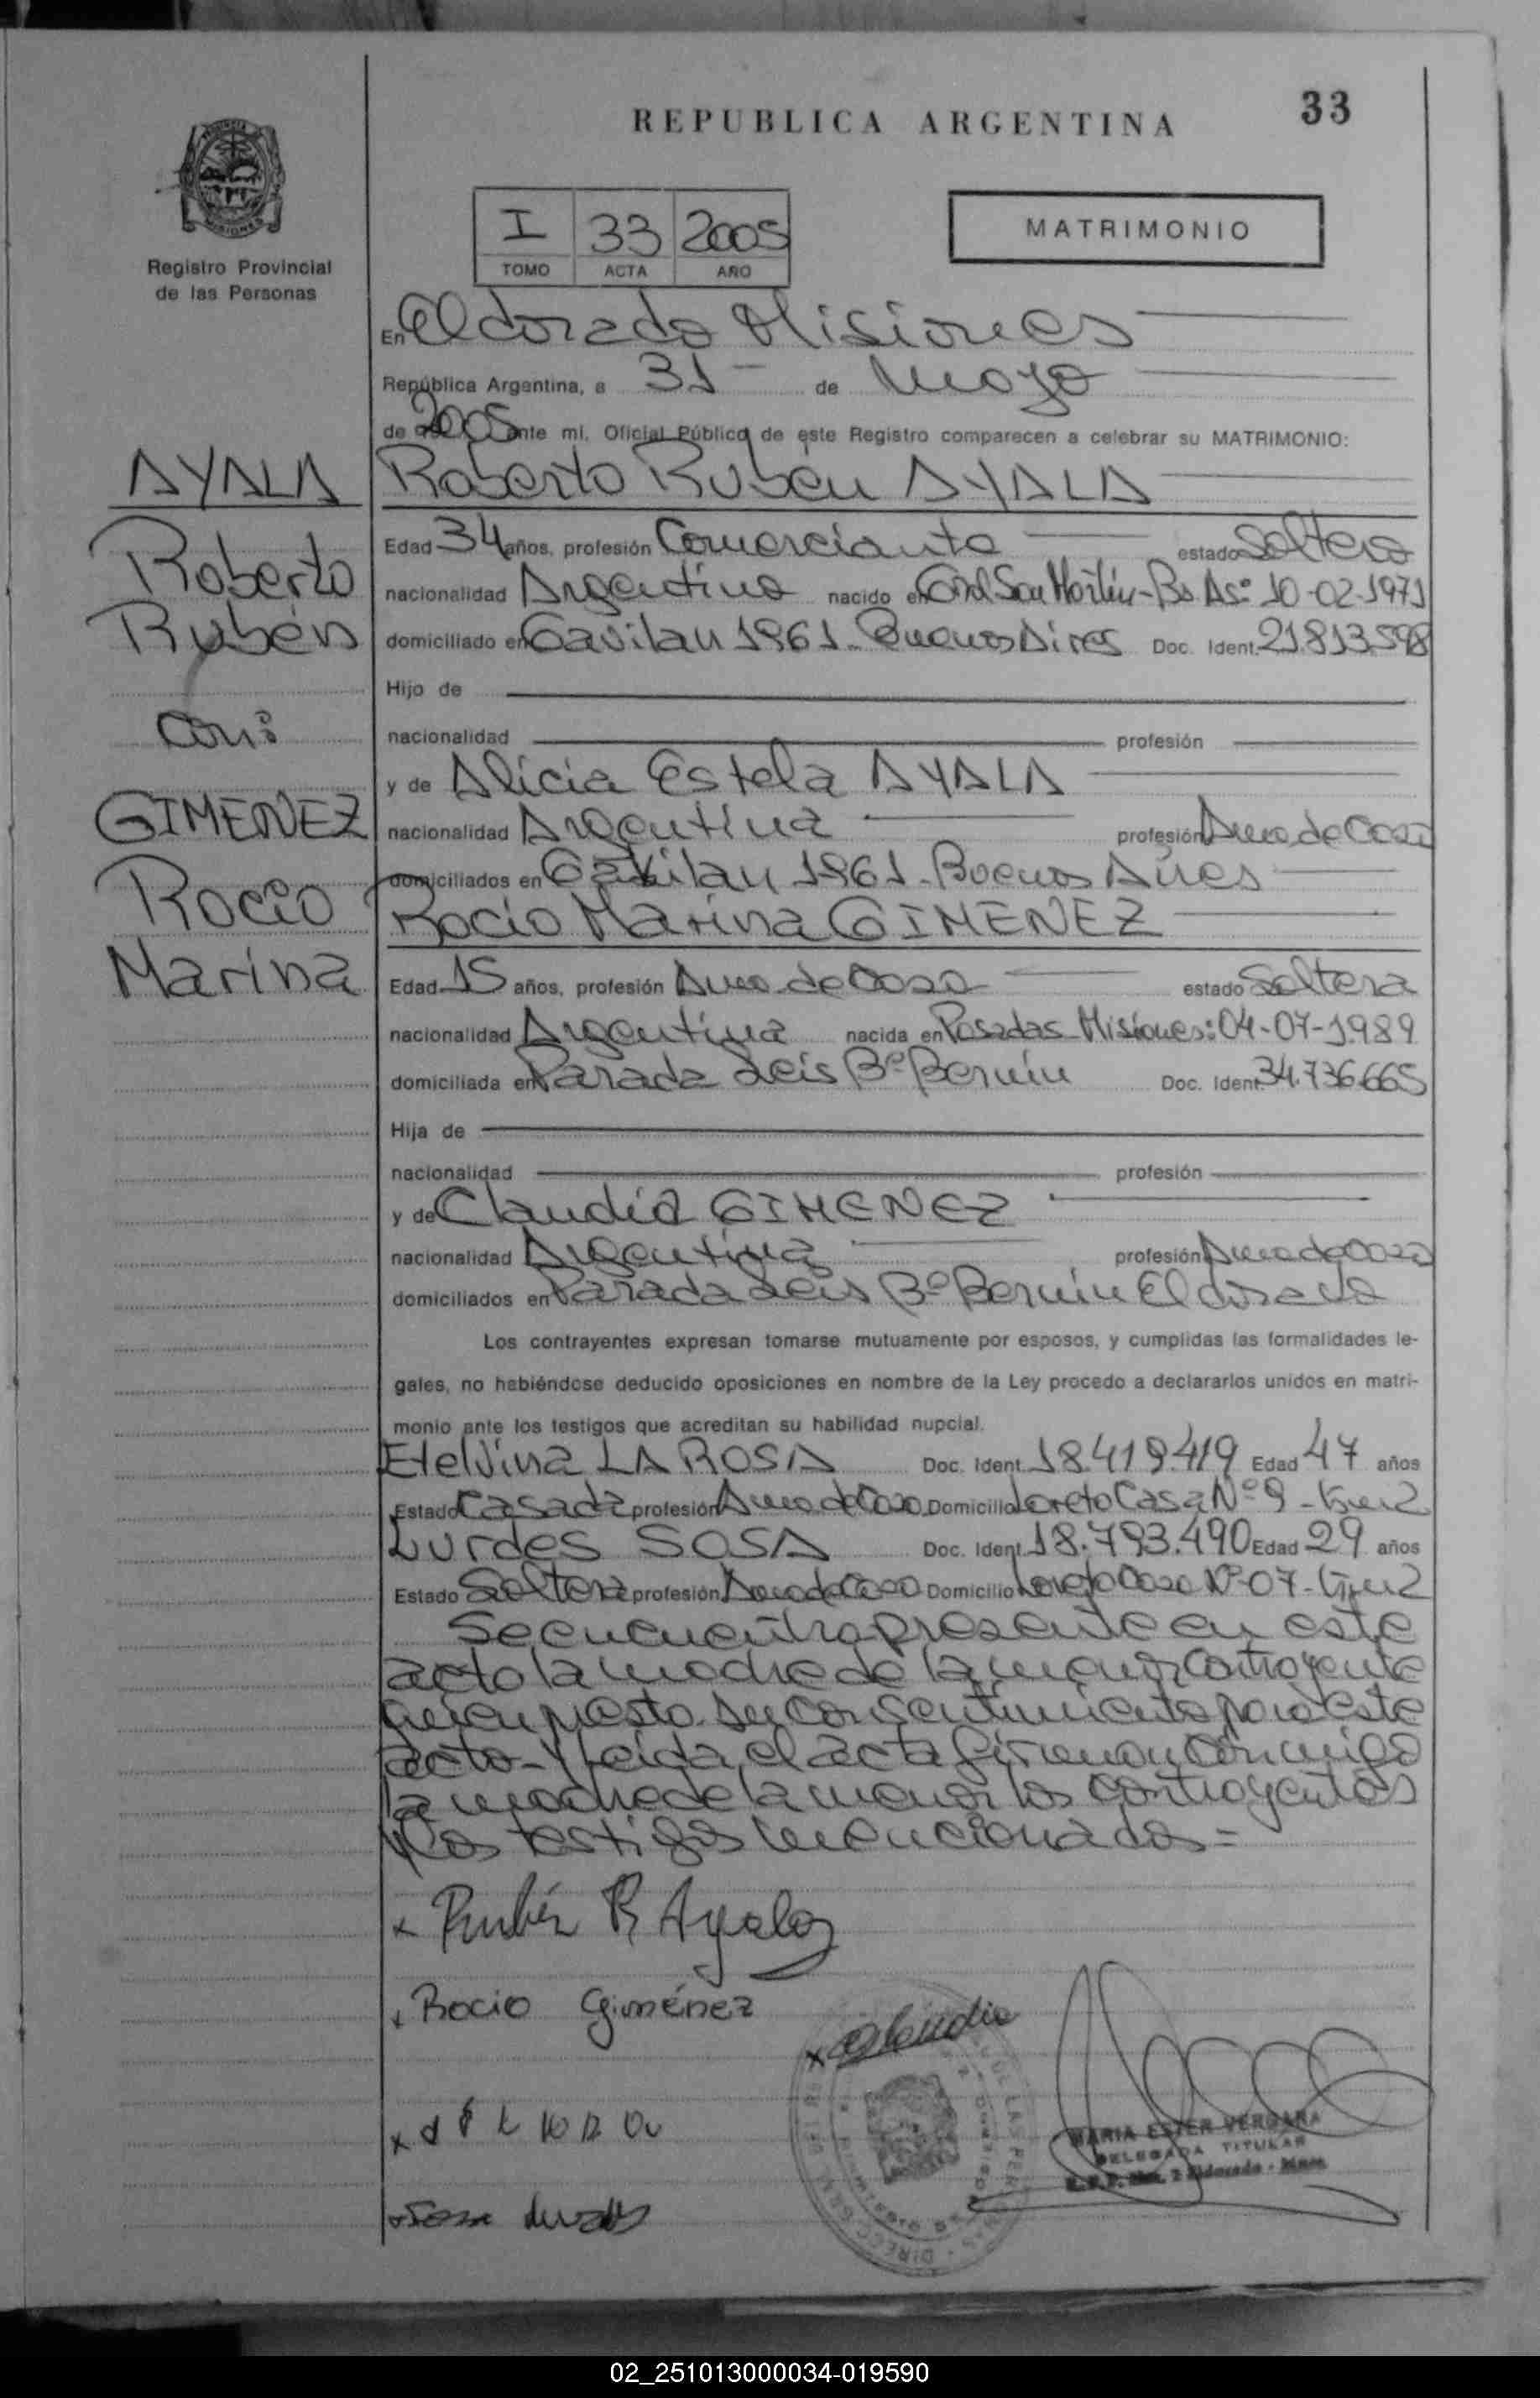 33
REPUBLICA ARGENTINA
PROVINCIA
MISIONES
Registro Provincial
de las Personas
I 33 2005
TOMO ACTA AÑO
MATRIMONIO
En Eldorado Misiones
República Argentina, a 31 de Mayo
de 2005 ante mi, Oficial Público de este Registro comparecen a celebrar su MATRIMONIO:
AYALA
Roberto
Rubén
Con:
GIMENEZ
Rocío
Marina
Roberto Rubén AYALA
Edad 34 años, profesión Comerciante estado Soltero
nacionalidad Argentino nacido en Gral San Martín-Bs As: 10-02-1971
domiciliado en Gavilan 1961 - Buenos Aires Doc. Ident. 21.813.598
Hijo de
nacionalidad profesión
y de Alicia Estela AYALA
nacionalidad Argentina profesión Ama de Casa
domiciliados en Gavilan 1961 - Buenos Aires
Rocío Marina GIMENEZ
Edad 15 años, profesión Ama de Casa estado Soltera
nacionalidad Argentina nacida en Posadas Misiones: 04-07-1989
domiciliada en Parada Leis Bº Bernin Doc. Ident. 34.736.665
Hija de
nacionalidad profesión
y de Claudia GIMENEZ
nacionalidad Argentina profesión Ama de Casa
domiciliados en Parada Leis Bº Bernin Eldorado
Los contrayentes expresan tomarse mutuamente por esposos, y cumplidas las formalidades le-
gales, no habiéndose deducido oposiciones en nombre de la Ley procedo a declararlos unidos en matri-
monio ante los testigos que acreditan su habilidad nupcial.
Etelvina LA ROSA Doc. Ident. 18.419.419 Edad 47 años
Estado Casada profesión Ama de Casa Domicilio Loreto Casa Nº 9 - Km 2
Lurdes SOSA Doc. Ident. 18.793.490 Edad 29 años
Estado Soltera profesión Ama de Casa Domicilio Loreto Casa Nº 07 - Km 2
Se encuentra presente en este
acto la madre de la menor contrayente
quien presta su consentimiento para este
acto - Y Leída el acta firman conmigo
la madre de la menor los contrayentes
y los testigos mencionados =
x Rubén R Ayala
x Rocio Giménez
x Claudia
x
x Sosa
MARIA ESTER VERGARA
DELEGADA TITULAR
2 Eldorado - Mnes.
02_251013000034-019590